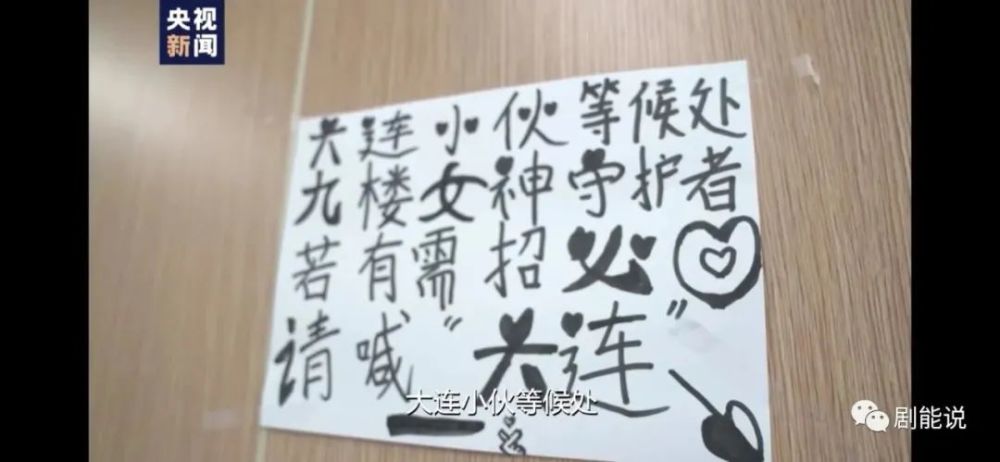 央视
新闻
大连小伙等候处
九楼女神守护者
若有需招必
请喊"大连"
大连小伙等候处
剧能说